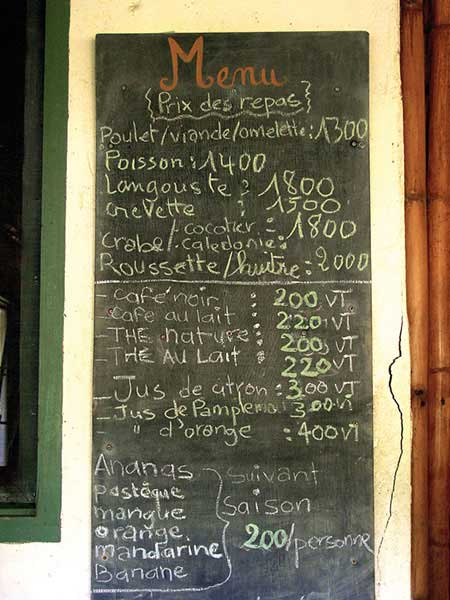 Menu
{Prix des repas}
Poulet/viande/omelette: 1300
Poisson: 1400
Langouste : 1800
crevette : 1500
Crabe/. cocotier / caledonie : 1800
Roussette/huitre: 2000
- café noir : 200 VT
- café au lait : 220 VT
- THÉ nature : 200 VT
- THÉ AU Lait : 220 VT
- Jus de citron : 300 VT
- Jus de Pamplemo: 300 VT
- " d'orange : 400 VT
Ananas
pastèque
mangue
orange
mandarine
Banane
Suivant
Saison
200/personne